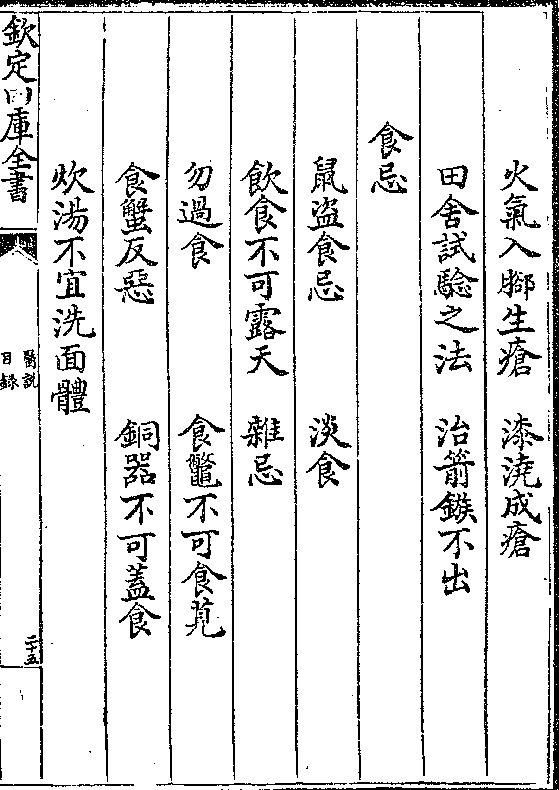 火氣入腳生瘡　漆澆成瘡
田舍試驗之法　治箭鏃不出
食忌
鼠盜食忌　淡食
飲食不可露天　雜忌
勿過食　食鼈不可食莧
食蟹反惡　銅器不可蓋食
炊湯不宜洗面體
欽定四庫全書
醫説
目録
二十五